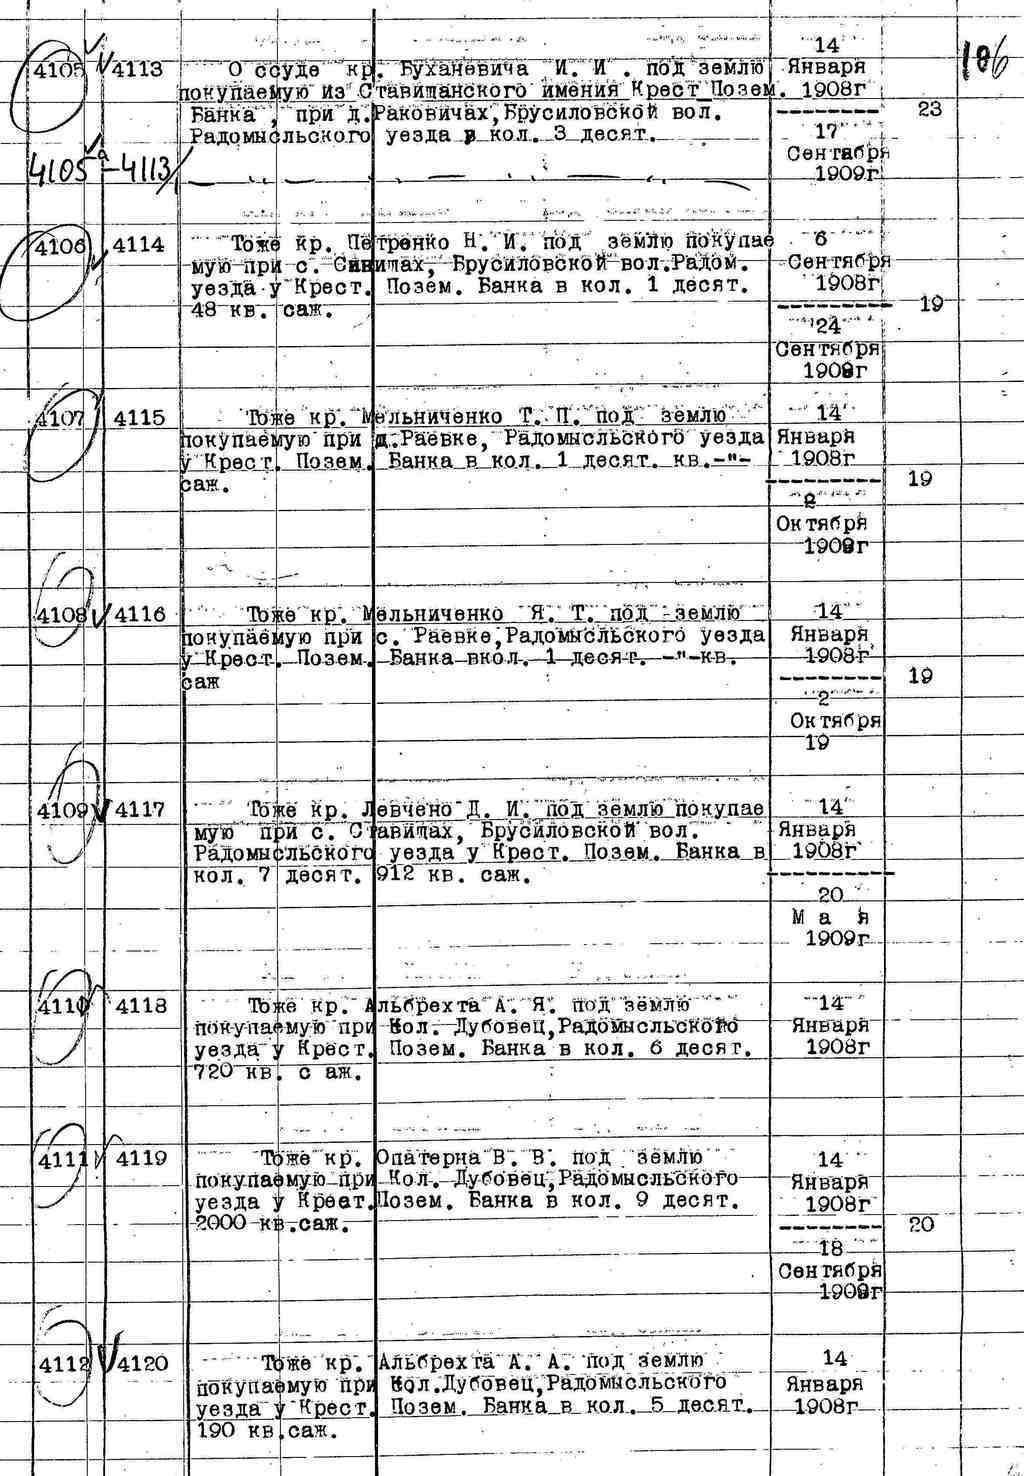 186
4105 4113 О ссуде кр. Буханевича И. И. под землю
покупаемую из Ставищанского имения Крест Позем.
Банка, при д.Раковичах, Брусиловской вол.
Радомысльского уезда в кол. 3 десят.
14
Января
1908г
17
Сентября
1909г
23
4105а-4113
4106 4114 Тоже кр. Петренко Н. И. под землю покупае
мую при с. Сивищах, Брусиловской вол.Радом.
уезда у Крест. Позем. Банка в кол. 1 десят.
48 кв. саж.
6
Сентября
1908г
24
Сентября
1909г
19
4107 4115 Тоже кр. Мельниченко Т. П. под землю
покупаемую при д.Раевке, Радомысльского уезда
у Крест. Позем. Банка в кол. 1 десят. кв.-"-
саж.
14
Января
1908г
2
Октября
1909г
19
4108 4116 Тоже кр. Мельниченко Я. Т. под землю
покупаемую при с. Раевке,Радомысльского уезда
у Крест. Позем. Банка вкол. 1 десят. -"-кв.
саж
14
Января
1908г
2
Октября
19
19
4109 4117 Тоже кр. Левчено Д. И. под землю покупае
мую при с. Ставищах, Брусиловской вол.
Радомысльского уезда у Крест. Позем. Банка в
кол. 7 десят. 912 кв. саж.
14
Января
1908г
20
М а я
1909г
4110 4118 Тоже кр. Альбрехта А. Я. под землю
покупаемую при Кол. Дубовец,Радомысльского
уезда у Крест. Позем. Банка в кол. 6 десят.
720 кв. с аж.
14
Января
1908г
4111 4119 Тоже кр. Опатерна В. В. под землю
покупаемую при Кол. Дубовец,Радомысльского
уезда у Крест.Позем. Банка в кол. 9 десят.
2000 кв.саж.
14
Января
1908г
18
Сентября
1909г
20
4112 4120 Тоже кр. Альбрехта А. А. под землю
покупаемую при Кол.Дубовец,Радомысльского
уезда у Крест. Позем. Банка в кол. 5 десят.
190 кв.саж.
14
Января
1908г